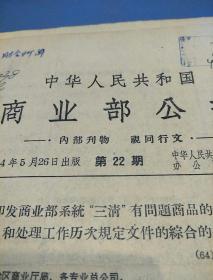 中华人民共和国
商业部公
—— · 内部刊物　視同行文 · ——
4年5月26日出版　第22期　中华人民
办公
印发商业部系統“三清”有問題商品的
和处理工作历次規定文件的綜合的
(64
区商业厅局、各专业总公司